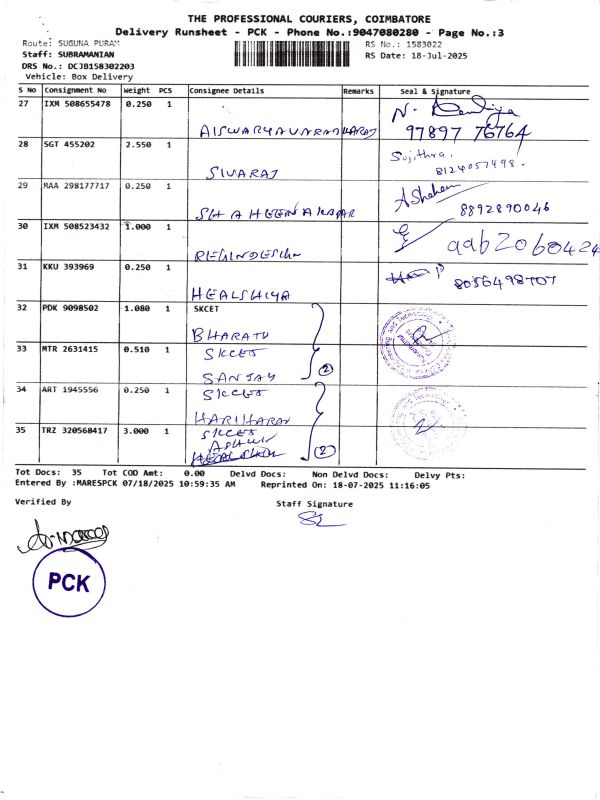 THE PROFESSIONAL COURIERS, COIMBATORE
Delivery Runsheet - PCK - Phone No.:9047080280 - Page No.:3
Route: SUGUNA PURAM
RS No.: 1583022
Staff: SUBRAMANIAN
RS Date: 18-Jul-2025
DRS No.: DCJB158302203
Vehicle: Box Delivery
S No Consignment No Weight PCS Consignee Details Remarks Seal & Signature
27 IXM 508655478 0.250 1
97897 76764
28 SGT 455202 2.550 1 Sujithra.
SIVARAJ 8124057498.
29 MAA 298177717 0.250 1 A Shaheen
SHAHEENAKBAR 8892890046
30 IXM 508523432 1.000 1
31 KKU 393969 0.250 1
HEALSHIYA 8056498707
32 PDK 9098502 1.080 1 SKCET
BHARATH
33 MTR 2631415 0.510 1 SKCET
SANJAY (2)
34 ART 1945556 0.250 1 SKCET
HARIHARAN
35 TRZ 320568417 3.000 1 SKCET
ASHWI (2)
Tot Docs: 35 Tot COD Amt: 0.00 Delvd Docs: Non Delvd Docs: Delvy Pts:
Entered By :MARESPCK 07/18/2025 10:59:35 AM Reprinted On: 18-07-2025 11:16:05
Verified By Staff Signature
PCK